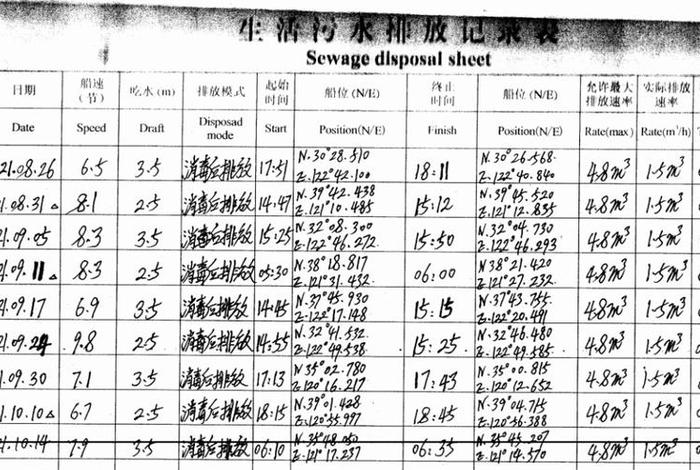 生活污水排放记录表
Sewage disposal sheet
日期 船速(节) 吃水(m) 排放模式 起始时间 船位(N/E) 终止时间 船位(N/E) 允许最大排放速率 实际排放速率
Date Speed Draft Disposad mode Start Position(N/E) Finish Position(N/E) Rate(max) Rate(m³/h)
21.08.26 6.5 3.5 消毒后排放 17:51 N.30°28.510 E.122°42.100 18:11 N.30°26.568 E.122°40.840 4.8m³ 1.5m³
1.08.31△ 8.1 2.5 消毒后排放 14:47 N.39°42.438 E.121°10.485 15:12 N.39°45.520 E.121°12.835 4.8m³ 1.5m³
1.09.05 8.3 3.5 消毒后排放 15:25 N.32°08.300 E.122°46.272 15:50 N.32°04.730 E.122°46.293 4.8m³ 1.5m³
1.09.11△ 8.3 2.5 消毒后排放 05:30 N.38°18.817 E.121°31.432 06:00 N.38°21.420 E.121°27.232 4.8m³ 1.5m³
1.09.17 6.9 3.5 消毒后排放 14:45 N.37°45.930 E.122°17.148 15:15 N.37°43.755 E.122°20.491 4.8m³ 1.5m³
1.09.24 9.8 2.5 消毒后排放 14:55 N.32°41.532 E.122°49.538 15:25 N.32°46.480 E.122°49.585 4.8m³ 1.5m³
1.09.30 7.1 3.5 消毒后排放 17:13 N.35°02.780 E.120°16.217 17:43 N.35°00.815 E.120°12.652 4.8m³ 1.5m³
1.10.10△ 6.7 2.5 消毒后排放 18:15 N.39°01.428 E.120°55.997 18:45 N.39°04.715 E.120°56.388 4.8m³ 1.5m³
1.10.14 7.9 3.5 消毒后排放 06:10 N.35°48.050 E.121°17.237 06:35 N.35°45.207 E.121°14.570 4.8m³ 1.5m³